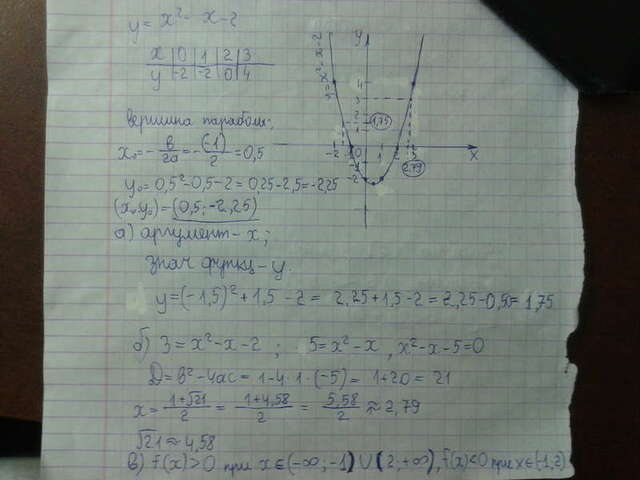 y = x² - x - 2
x | 0 | 1 | 2 | 3
y | -2 | -2 | 0 | 4
Вершина параболы:
x₀ = -b/2a = -(-1)/2 = 0,5
y₀ = 0,5² - 0,5 - 2 = 0,25 - 2,5 = -2,25
(x₀; y₀) = (0,5; -2,25)
а) аргумент - x;
y = (-1,5)² + 1,5 - 2 = 2,25 + 1,5 - 2 = 2,25 - 0,50 = 1,75
б) 3 = x² - x - 2; 5 = x² - x, x² - x - 5 = 0
D = b² - 4ac = 1 - 4·1·(-5) = 1 + 20 = 21
x = (1+√21)/2 = (1+4,58)/2 = 5,58/2 ≈ 2,79
√21 ≈ 4,58
в) f(x) > 0 при x ∈ (-∞; -1) ∪ (2; +∞), f(x) < 0 при x ∈ (-1; 2)
y
x
1,75
2,79